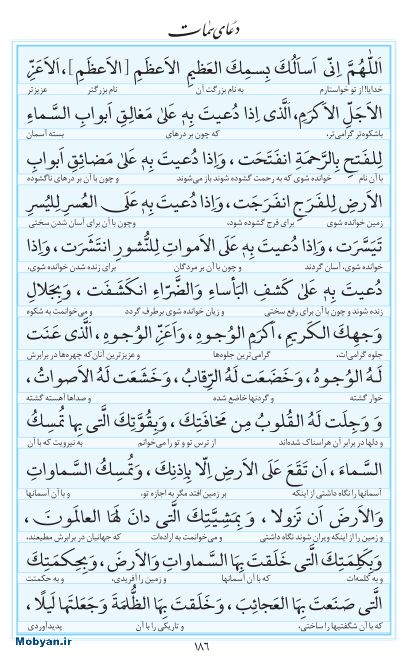 دعای سمات
اَللّٰهُمَّ اِنّی اَساَلُكَ بِسمِكَ العَظیمِ الاَعظَمِ [الاَعظَمِ] ،اَلاَعَزِّ
خدایا! از تو خواستارم به نام بزرگت آن نام بزرگتر عزیزتر
الاَجَلِّ الاَكرَمِ، اَلَّذی اِذا دُعیتَ بِهٖ عَلیٰ مَغالِقِ اَبوابِ السَّماءِ
باشکوه‌تر گرامی‌تر، که چون بر درهای بسته آسمان
لِلفَتحِ بِالرَّحمَةِ انفَتَحَت ، وَاِذا دُعیتَ بِهٖ عَلیٰ مَضائِقِ اَبوابِ
با آن نام خوانده شوی که به رحمت گشوده شوند باز می‌شوند و چون با آن بر درهای ناگشوده
الاَرضِ لِلفَرَجِ انفَرَجَت ، وَاِذا دُعیتَ بِهٖ عَلَی العُسرِ لِلیُسرِ
زمین خوانده شوی برای فرج گشوده شود، وچون با آن برای آسان شدن سختی
تَیَسَّرَت ، وَاِذا دُعیتَ بِهٖ عَلَی الاَمواتِ لِلنُّشورِ انتَشَرَت ، وَاِذا
خوانده شوی، آسان گردند و چون با آن بر مردگان برای زنده شدن خوانده شوی،
دُعیتَ بِهٖ عَلیٰ كَشفِ البَأساءِ وَالضَّرّاءِ انكَشَفَت ، وَبِجَلالِ
زنده شوند و چون با آن برای رفع سختی و زیان خوانده شوی برطرف گردد و می‌خوانمت به شکوه
وَجهِكَ الكَریمِ، اَكرَمِ الوُجوهِ، وَاَعَزِّ الوُجوهِ، اَلَّذی عَنَت
جلوه گرامی‌ات، گرامی‌ترین جلوه‌ها و عزیزترین آنان که چهره‌ها در برابرش
لَهُ الوُجوهُ ، وَخَضَعَت لَهُ الرِّقابُ ، وَخَشَعَت لَهُ الاَصواتُ ،
خوار گشته و گردنها خاضع شده و صداها آهسته گشته
وَ وَجِلَت لَهُ القُلوبُ مِن مَخافَتِكَ ، وَبِقُوَّتِكَ الَّتی بِها تُمسِكُ
و دلها در برابر آن هراسناک شده‌اند از ترس تو و تو را می‌خوانم به نیرویت که با آن
السَّماءَ، اَن تَقَعَ عَلَی الاَرضِ اِلّا بِاِذنِكَ ، وَتُمسِكُ السَّماواتِ
آسمانها را نگاه داشتی از اینکه بر زمین افتد مگر به اجازه تو، و با آن آسمانها
وَالاَرضَ اَن تَزولا ، وَ بِمَشِیَّتِكَ الَّتی دانَ لَهَا العالَمونَ ،
و زمین را از اینکه ویران شوند نگاه داشتی و می‌خوانمت به اراده‌ات که جهانیان در برابرش مطیعند،
وَبِكَلِمَتِكَ الَّتی خَلَقتَ بِهَا السَّماواتِ وَالاَرضَ، وَبِحِكمَتِكَ
و به کلمه‌ات که با آن آسمانها و زمین را آفریدی، و به حکمتت
الَّتی صَنَعتَ بِهَا العَجائِبَ، وَخَلَقتَ بِهَا الظُّلمَةَ وَجَعَلتَها لَیلًا ،
که با آن شگفتیها را ساختی، و تاریکی را با آن پدیدآوردی
۱۸۶
Mobyan.ir